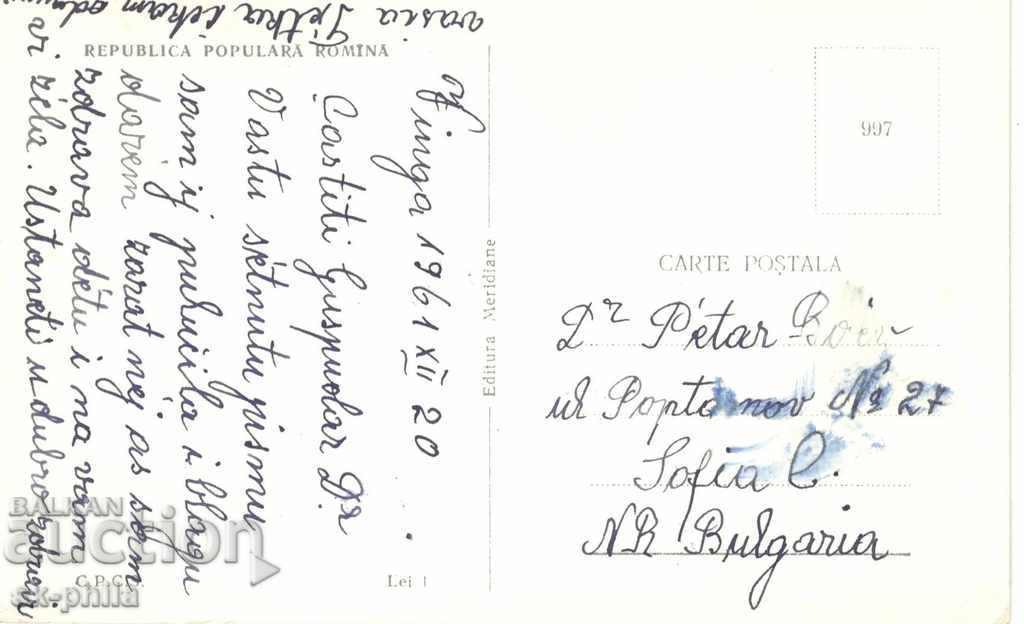 REPUBLICA POPULARĂ ROMÎNĂ
Vinga 1961 XII 20
Častiti Guspudar Dr
Vastu sétnutu pismu
sam ij pulučila i blagu
darem zarat nej as sam
zdrava détu i na vam
vi žéla. Ustaneti u dubro zdravi
Editura Meridiane
C.P.C.
Lei 1
997
CARTE POȘTALA
Dr Pétar
ul Poptomov № 27
Sofia C.
NR Bulgaria
BALKAN
auction
sk-phila